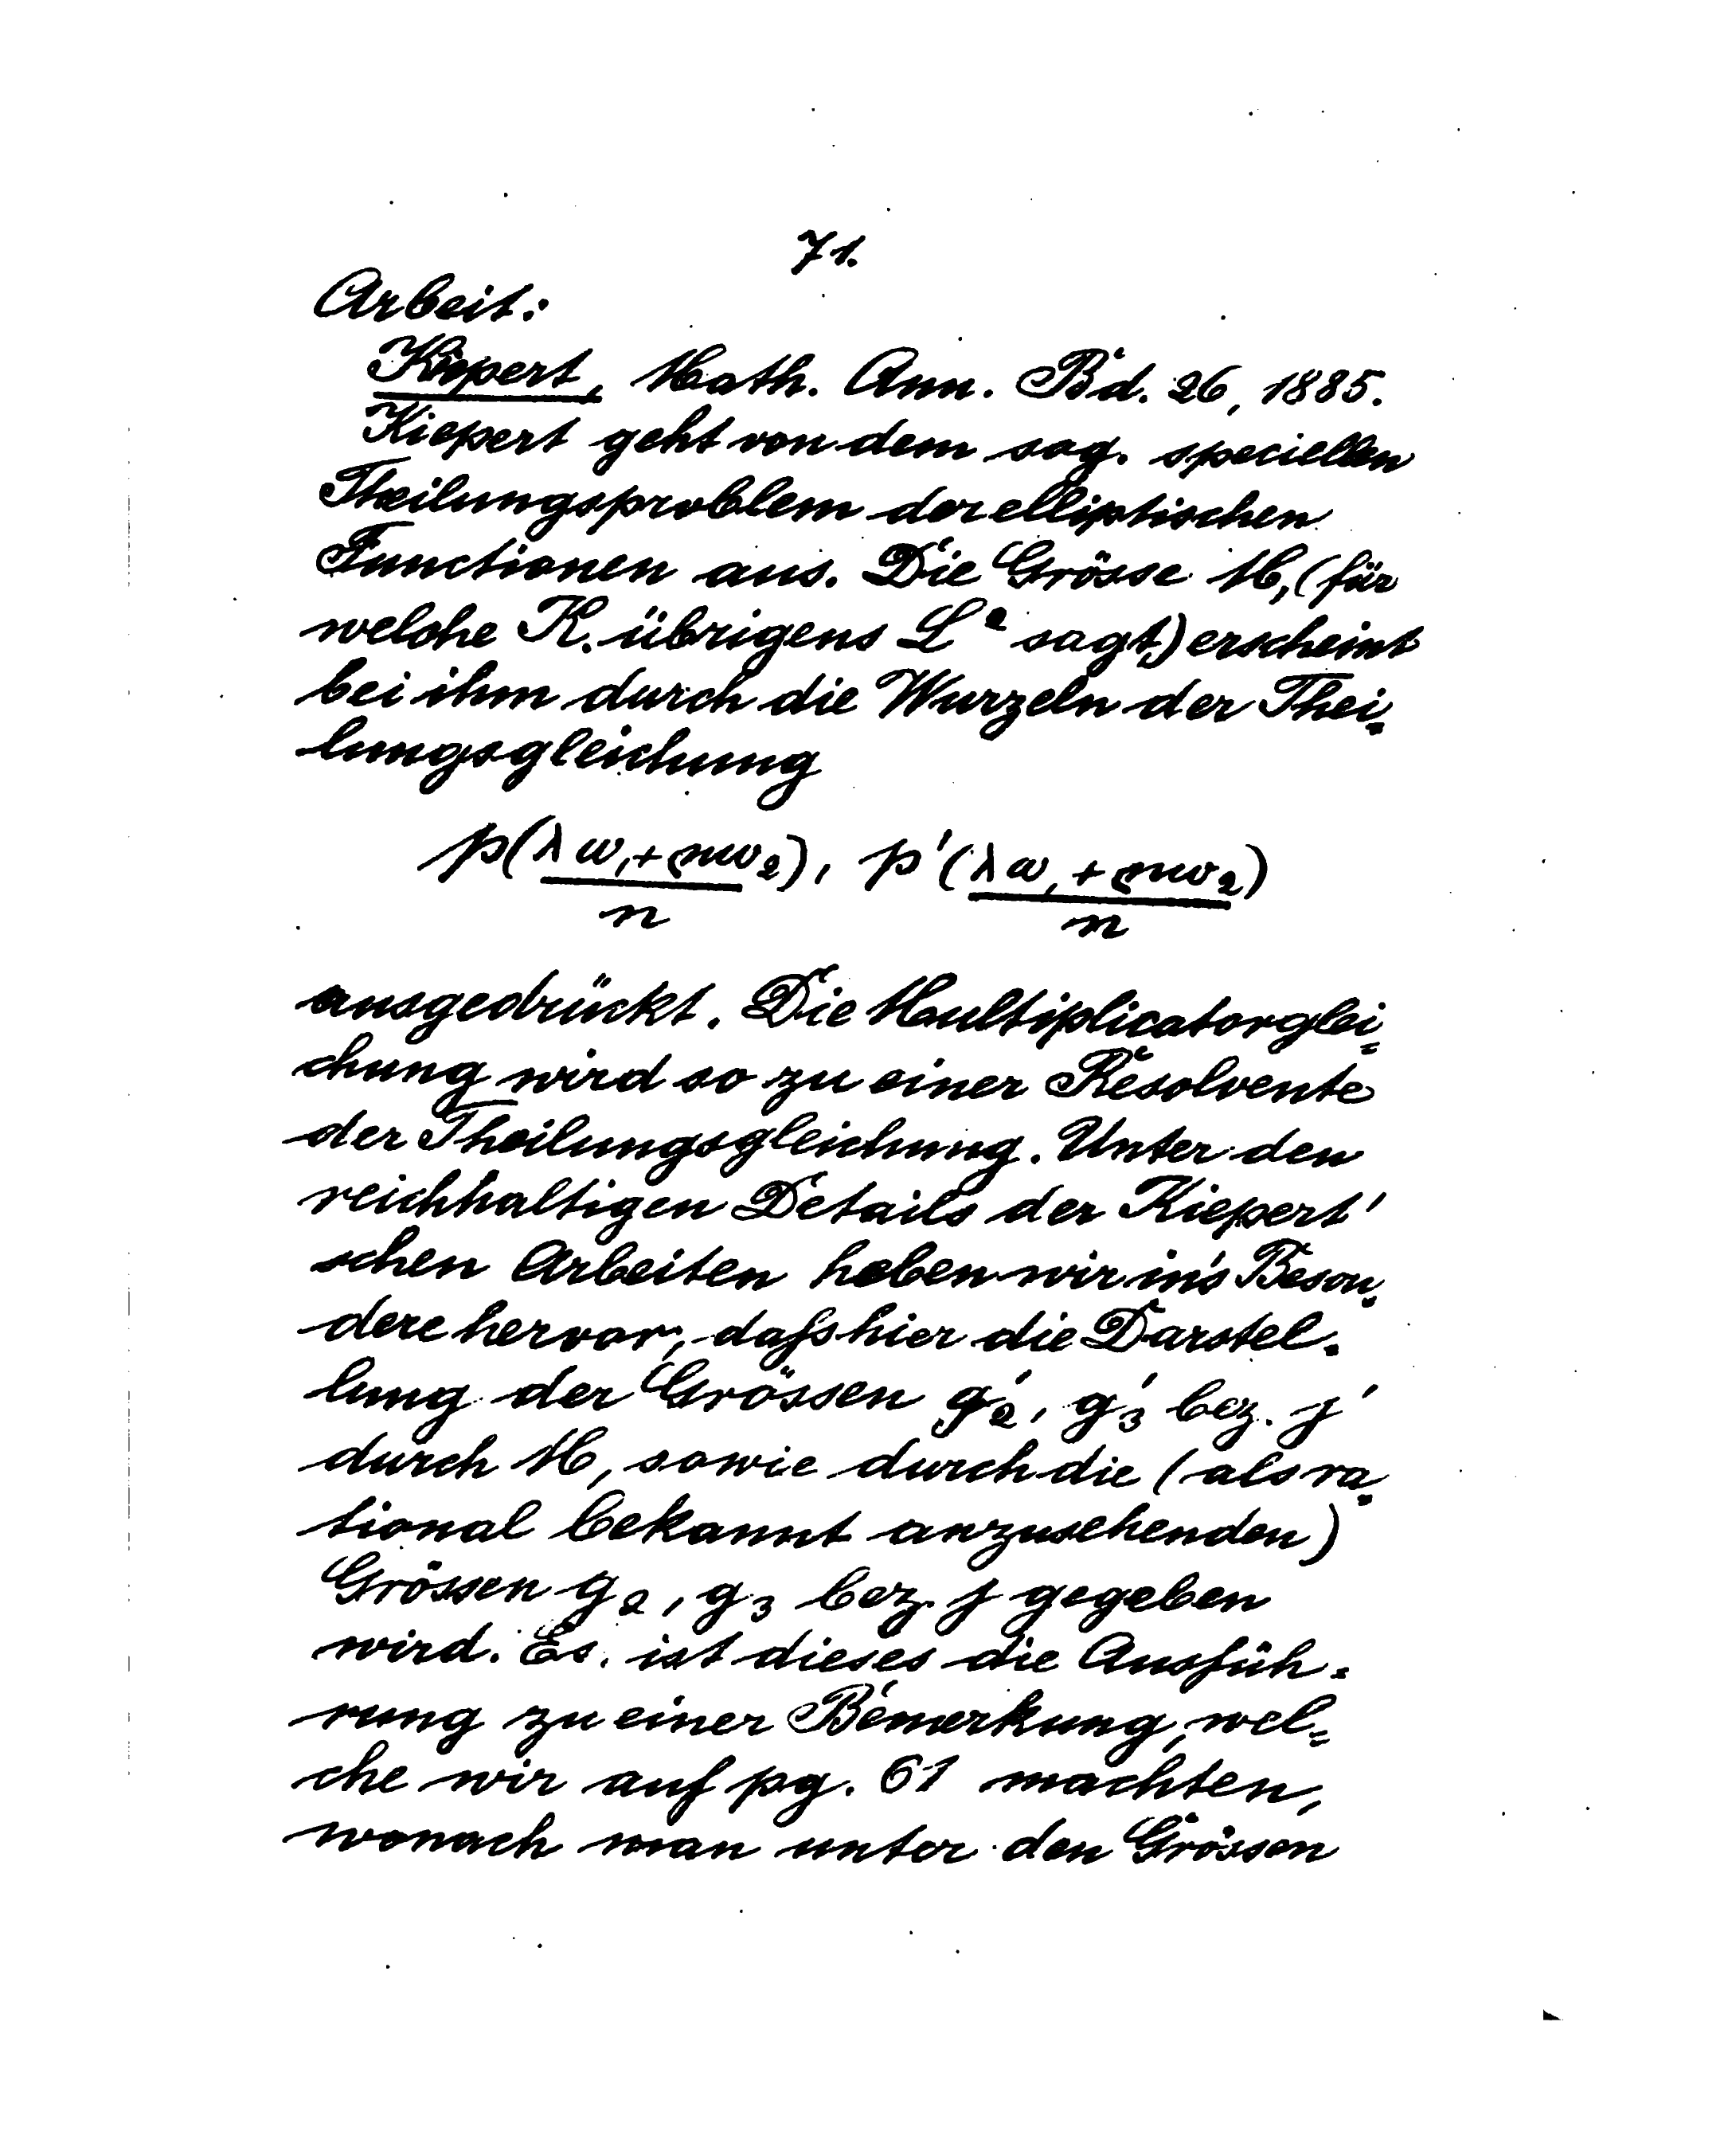 71.
Arbeit:
Kiepert, Math. Ann. Bd. 26, 1885.
Kiepert geht von dem sog. speciellen
Theilungsproblem der elliptischen
Functionen aus. Die Grösse M, (für
welche K. übrigens L² sagt,) erscheint
bei ihm durch die Wurzeln der Thei-
lungsgleichung
p(λω₁+μω₂), p'(λω₁+μω₂)
n n
ausgedrückt. Die Multiplicatorglei=
chung wird so zu einer Resolvente
der Theilungsgleichung. Unter den
reichhaltigen Details der Kiepert'
schen Arbeiten heben wir in's Beson-
dere hervor, dafs hier die Darstel-
lung der Grössen g₂', g₃' bez. j'
durch M, sowie durch die (als ra-
tional bekannt anzusehenden)
Grössen g₂, g₃ bez. j gegeben
wird. Es ist dieses die Ausfüh=
rung zu einer Bemerkung, wel=
che wir auf pg. 61 machten,
wonach man unter den Grössen